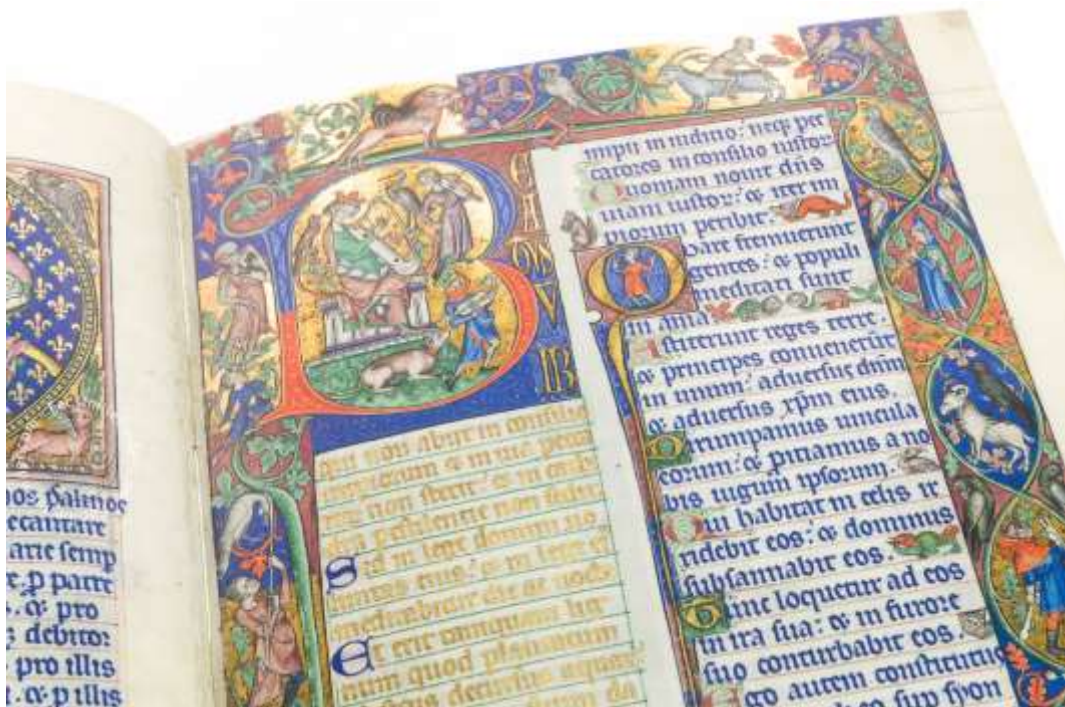 nos psalmos
decantare
arte semp
re. p parte
. & pro
debitor
pro illis
. & p illis
B
EA
T
US
VI
IR
qui non abiit in consilio
impiorum & in uia pecca
torum non stetit: & in cathe
dra pestilentie non sedit
Sed in lege domini uo
luntas eius: & in lege ei
meditabitur die ac nocte
Et erit tamquam lig
num quod plantatum
decursus aquar
da
impii in iudicio: neq; pec
catores in consilio iustor
Quoniam nouit dns
uiam iustor: & iter im
piorum peribit.
Quare fremuerunt
gentes: & populi
meditati sunt
in ania
Astiterunt reges terre.
& principes conuenerūt
in unum: aduersus dnm
& aduersus xpm eius.
Dirumpamus uincula
eorum: & piciamus a no
bis iugum ipsorum.
Qui habitat in celis ir
ridebit eos: & dominus
subsannabit eos.
Tunc loquetur ad eos
in ira sua: & in furore
suo conturbabit eos.
Ego autem constitutus
eo sup syon